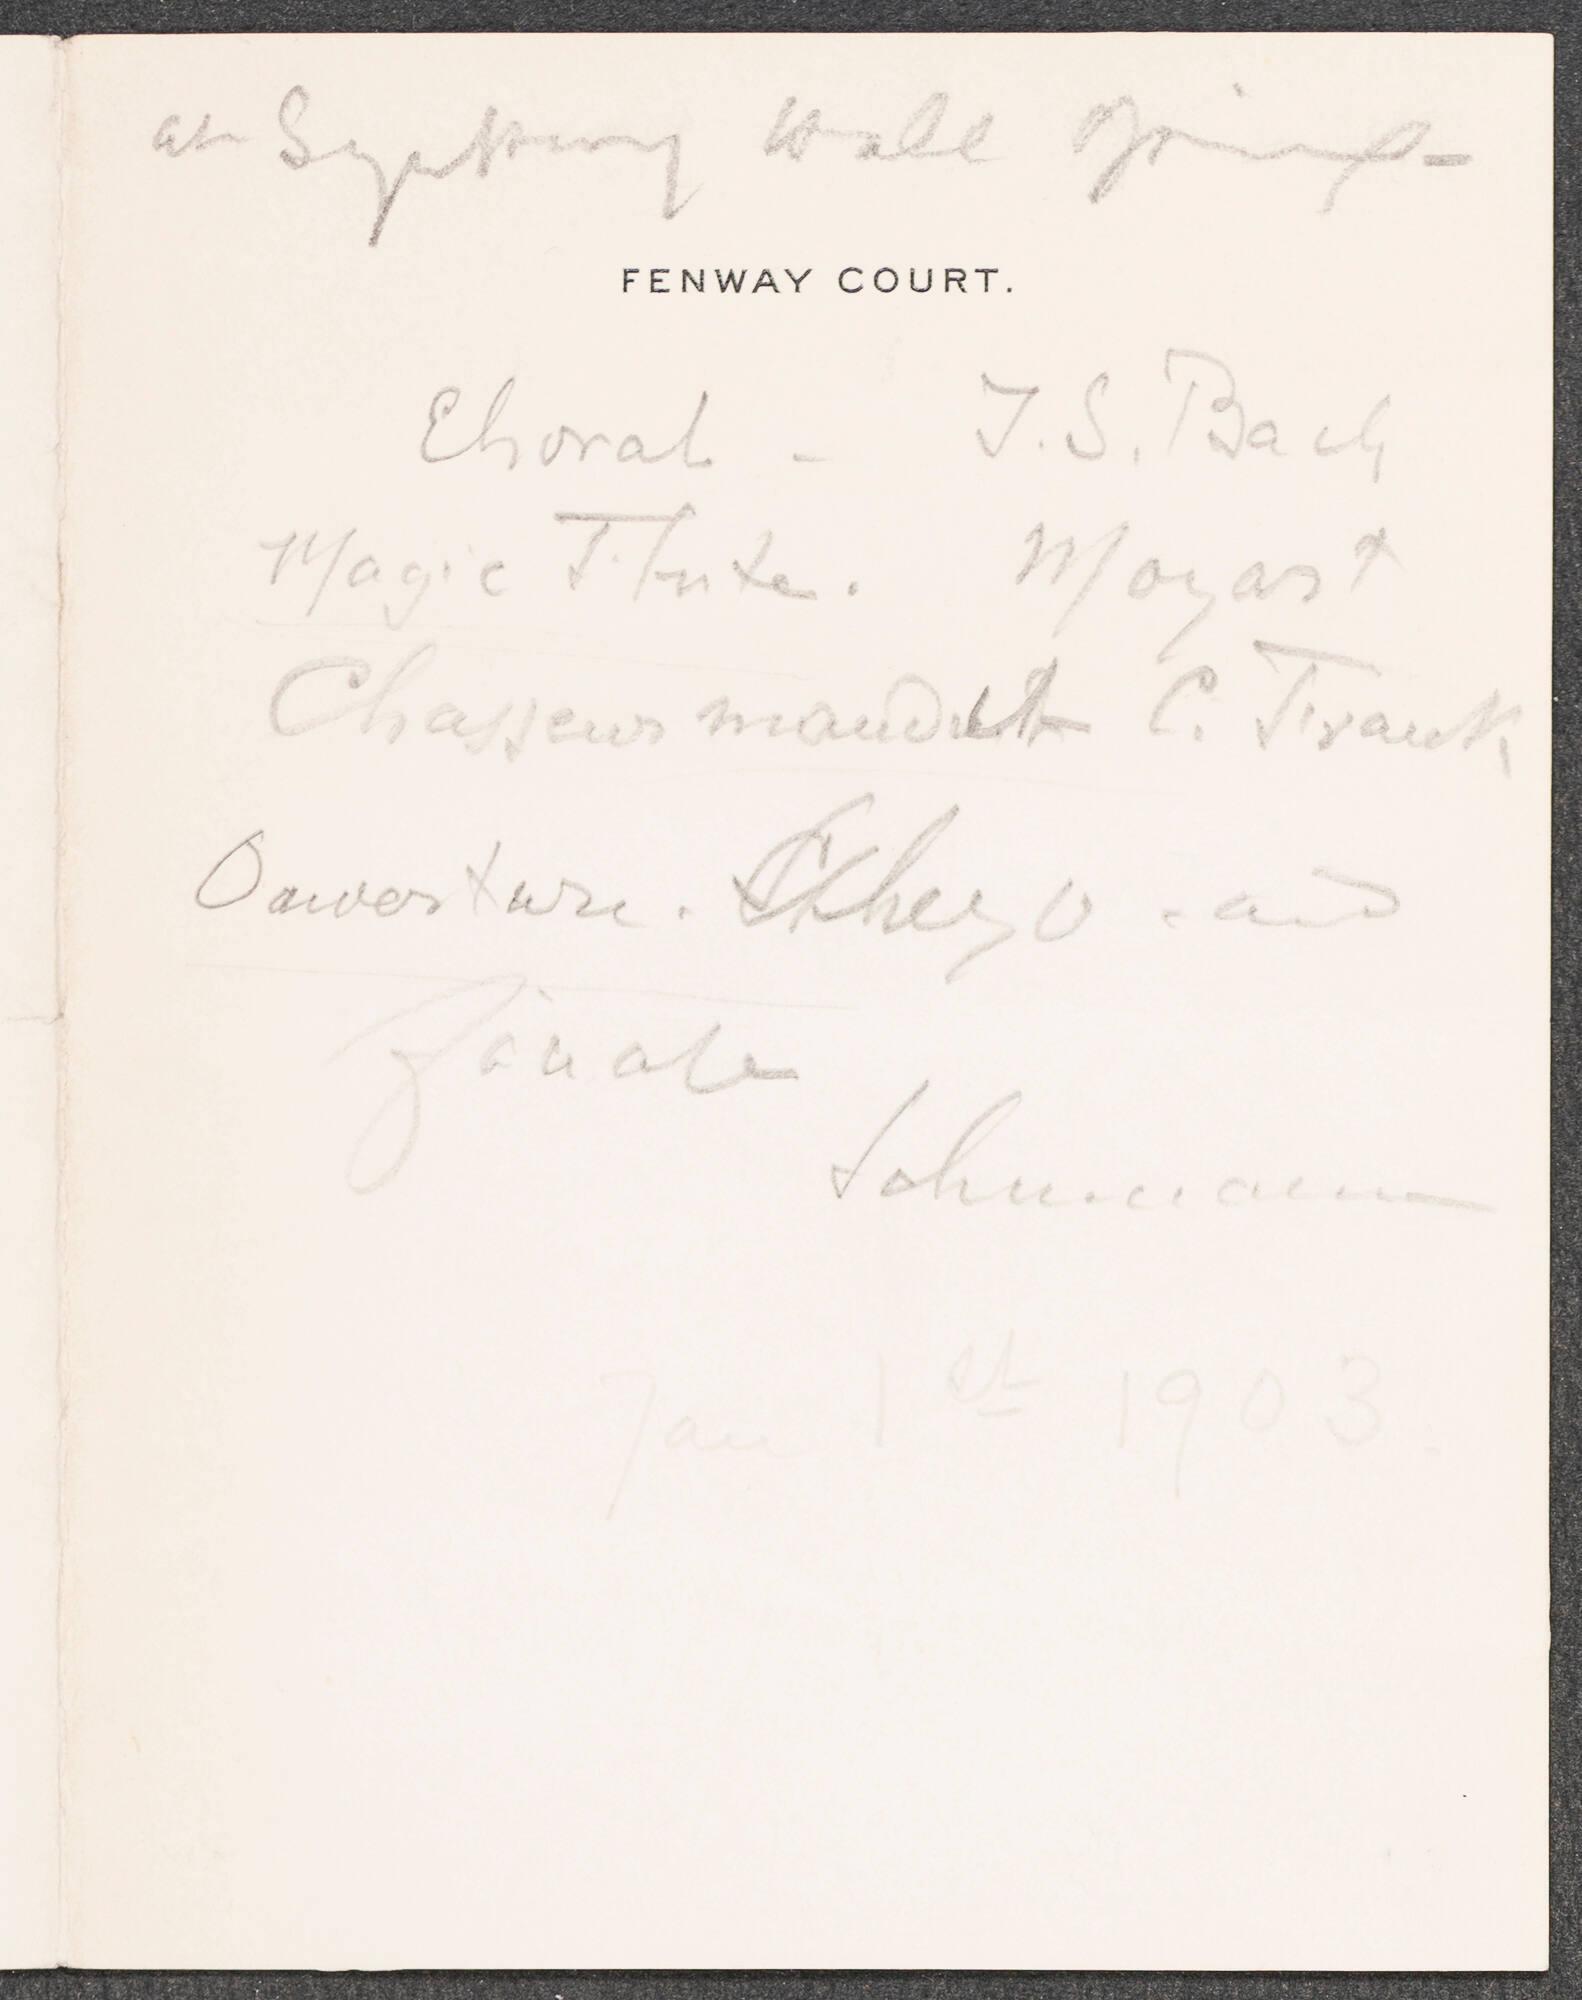 at Symphony Hall Opening –
FENWAY COURT.
Choral – J. S. Bach
Magic Flute. Mozart
Chasseur maudit C. Frank
Ouverture. Scherzo. and
Finale
Schumann
Jan 1st 1903.